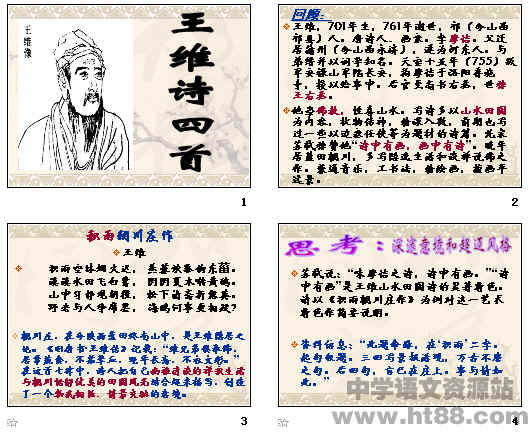 王维像
王维诗四首
1
回顾:
王维,701年生,761年逝世,祁(今山西
祁县)人。唐诗人、画家。字摩诘。父迁
居蒲州(今山西永济),遂为河东人。与
弟缙并以词学知名。天宝十五年(755)叛
军安禄山军陷长安,
王右丞。
他奉佛教,性喜山水。写诗多以山水田园
为内容,状物传神,精深入微,前期也写
过一些以边塞任侠等为题材的诗篇。北宋
苏轼称赞他“诗中有画,画中有诗”。晚年
居蓝田辋川,
兼通音乐,工书法,精绘画,
2
积雨辋川庄作
王维
积雨空林烟火迟,蒸藜炊黍饷东菑。
漠漠水田飞白鹭,阴阴夏木啭黄鹂。
山中习静观朝槿,松下清斋折露葵。
野老与人争席罢,海鸥何事更相疑?
辋川庄,在今陕西蓝田终南山中,是王维隐居之
地。《旧唐书·王维传》记载:“维兄弟俱奉佛,
居常蔬食,不茹荤血,晚年长斋,不衣文彩。”
在这首七律中,诗人把自己幽雅清淡的禅寂生活
与辋川恬静优美的田园风光结合起来描写,创造
了一个物我相惬、情景交融的意境。
3
思考:深邃意境和超逸风格
苏轼说:“味摩诘之诗,诗中有画。”“诗
中有画”是王维山水田园诗的显著特色。
请以《积雨辋川庄作》为例对这一艺术
特色作简要说明。
资料信息:“此题命脉,在‘积雨’二字。
起句叙题。三四写景极活现,万古不磨
之句。后四句,言己在庄上,事与情如
此。”
4
中学语文资源站
www.ht88.com